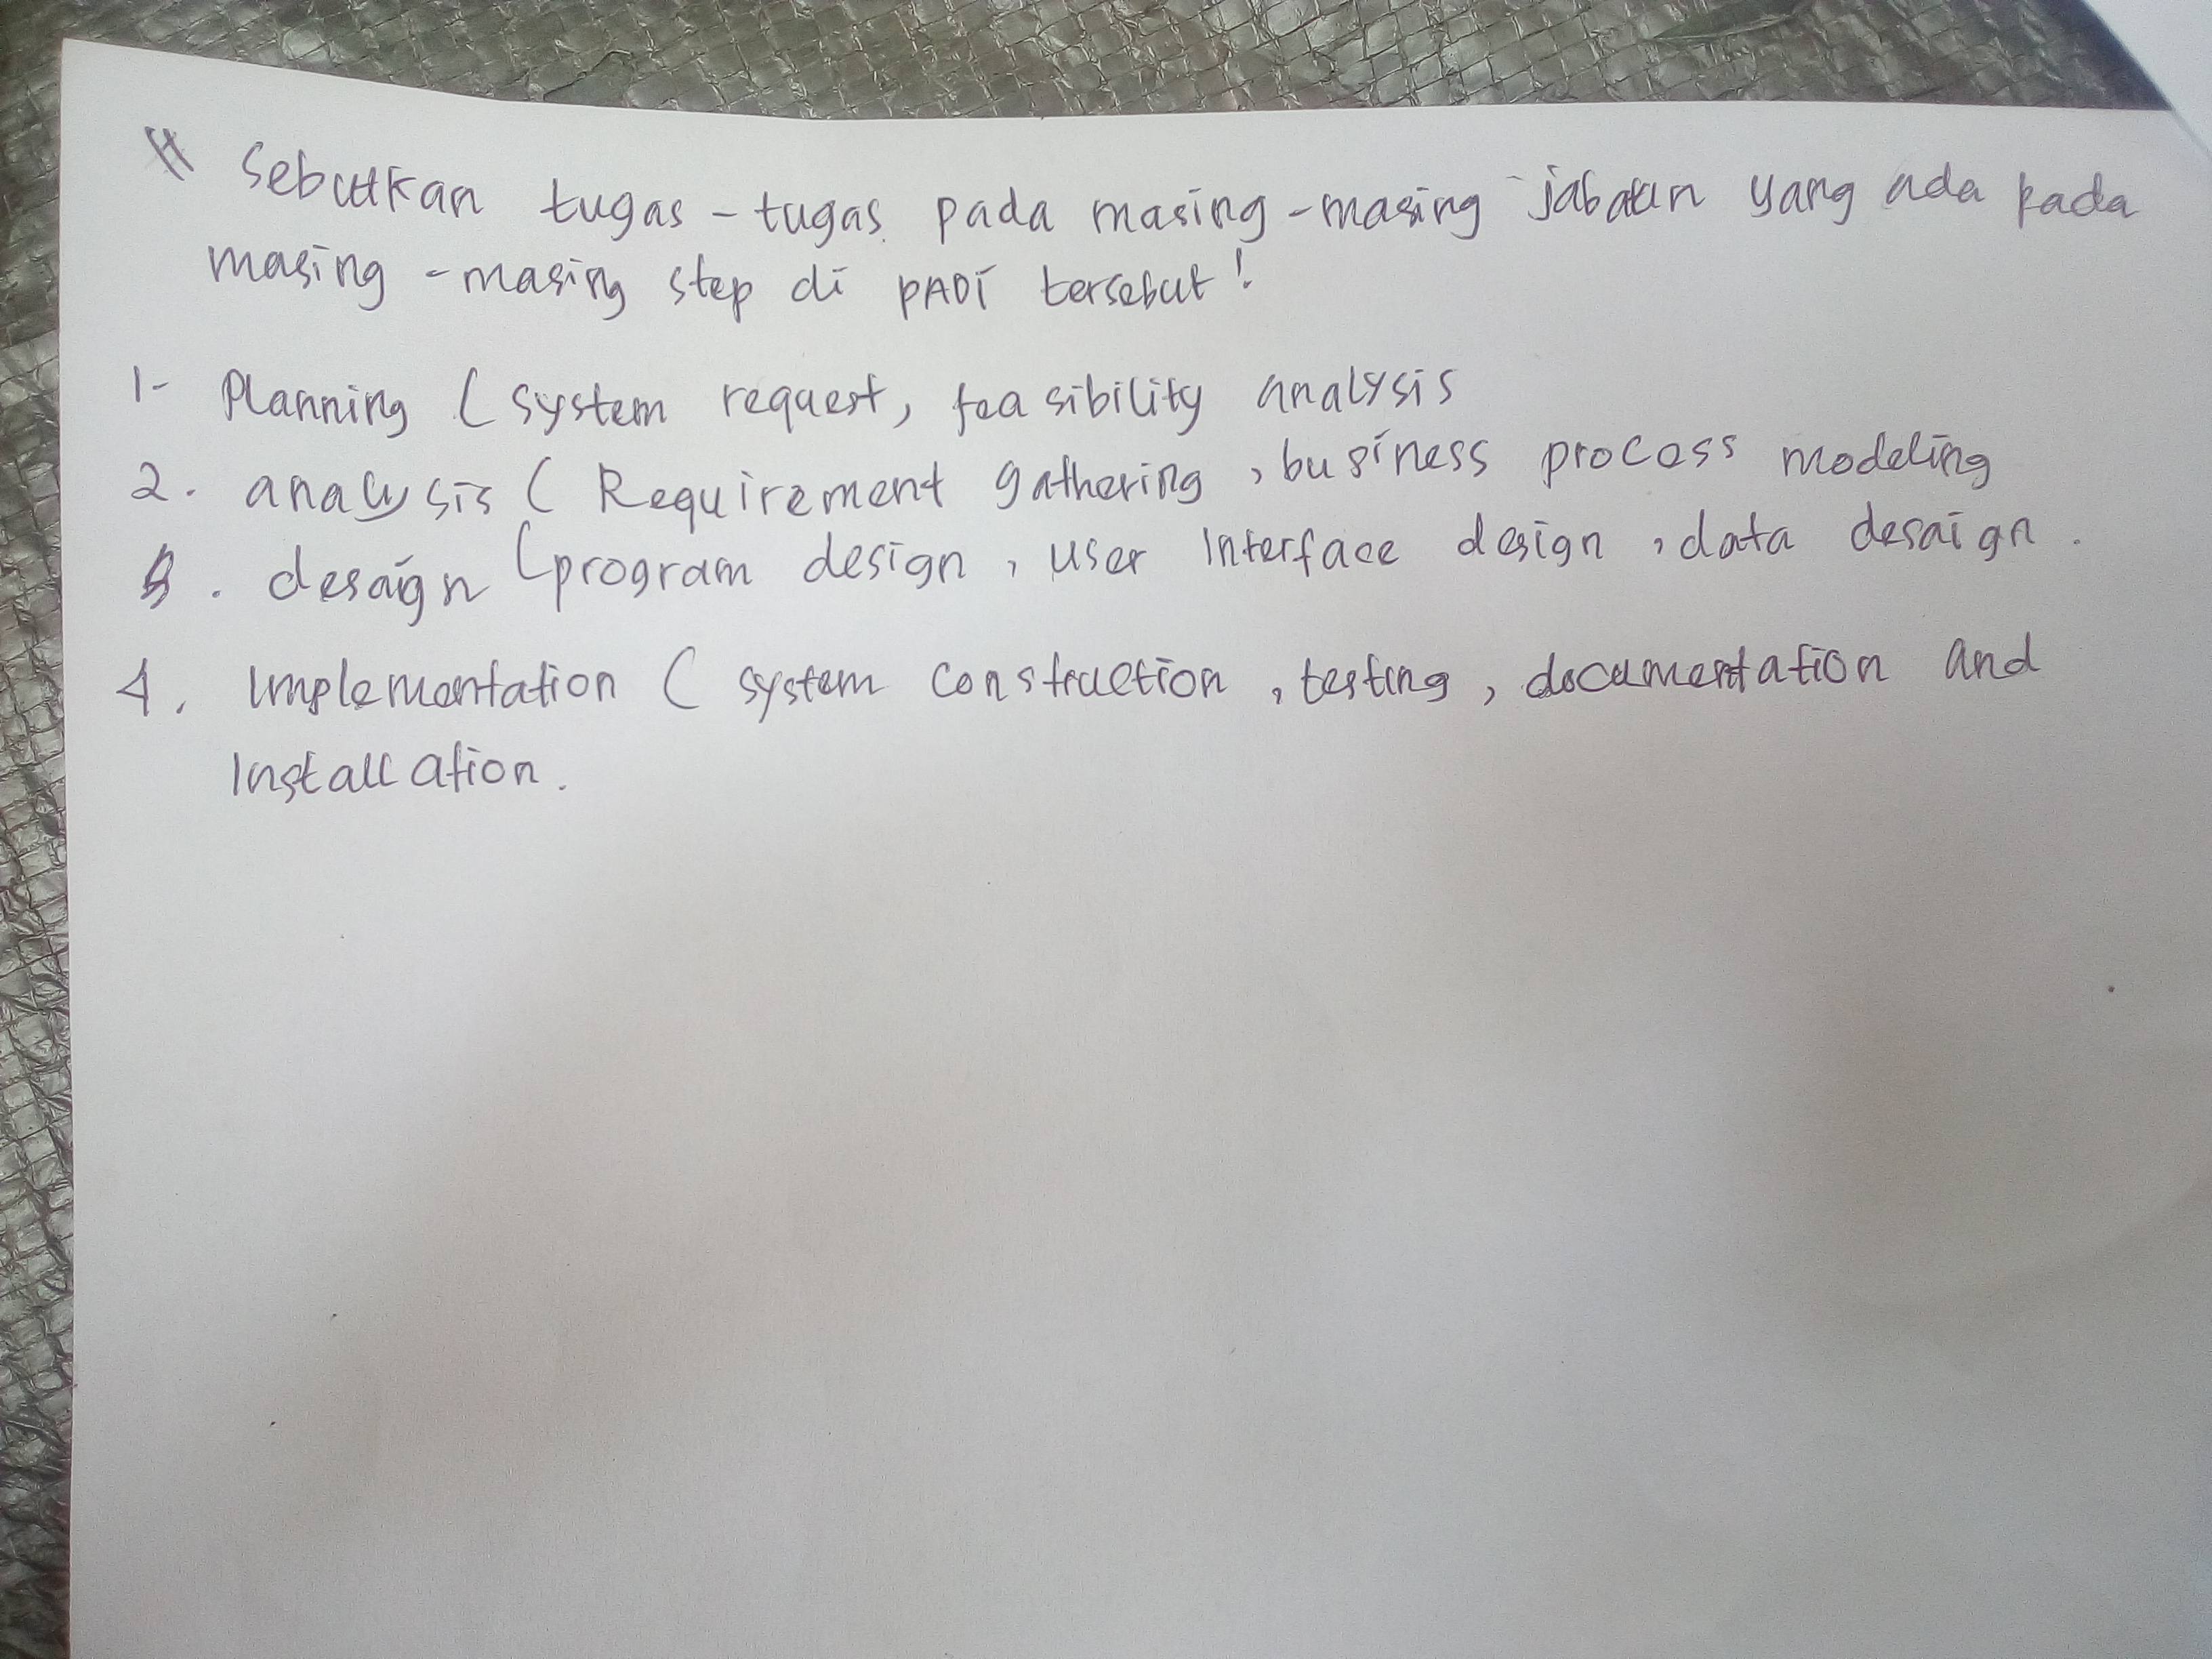 # Sebutkan tugas-tugas pada masing-masing jabatan yang ada pada
masing-masing step di PADI tersebut!
1- Planning ( system request, feasibility analysis
2. analysis ( Requirement gathering, business process modeling
3. desaign (program design, user Interface design, data desaign.
4. Implementation ( system construction, testing, documentation and
Installation.